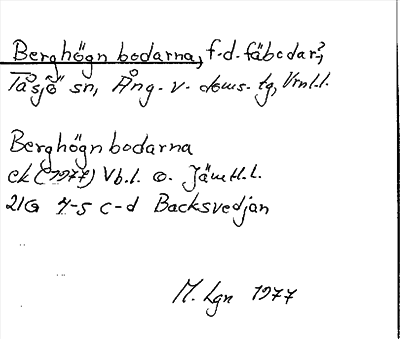 Berghögn bodarna, f.d. fäbodar?,
Tåsjö sn, Ång. v. doms. tg, Vrnl.l.
Berghögnbodarna
ek (1977) Vb.l. o. Jämtl.l.
21G 4-5 c-d Backsvedjan
M. Lgn 1977